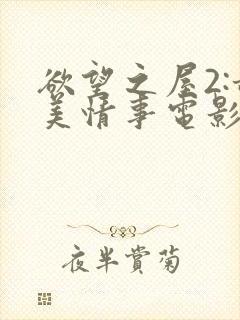 欲望之屋2:
美情事电影
夜半赏菊